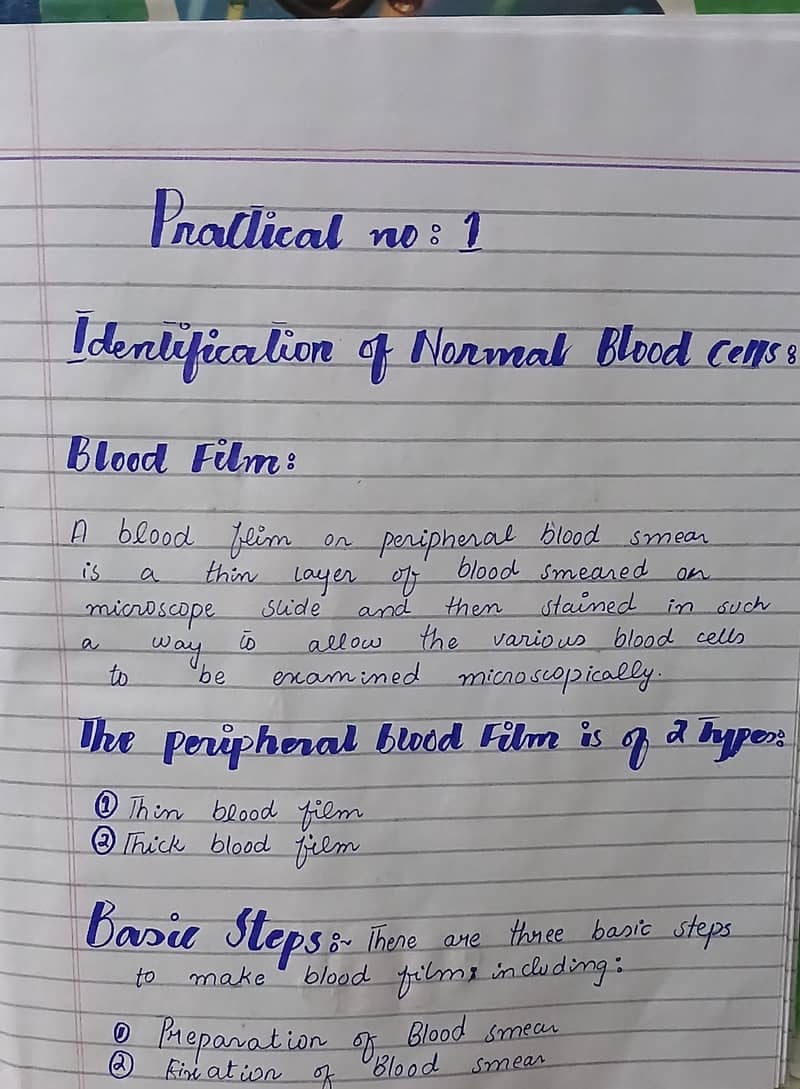 Practical no: 1
Identification of Normal Blood Cells:
Blood Film:
A blood flim or peripheral blood smear
is a thin layer of blood smeared on
microscope slide and then stained in such
a way to allow the various blood cells
to be examined microscopically.
The peripheral blood Film is of 2 Types:
① Thin blood film
② Thick blood film
Basic Steps:~ There are three basic steps
to make blood films including:
① Preparation of Blood smear
② Fixation of Blood smear